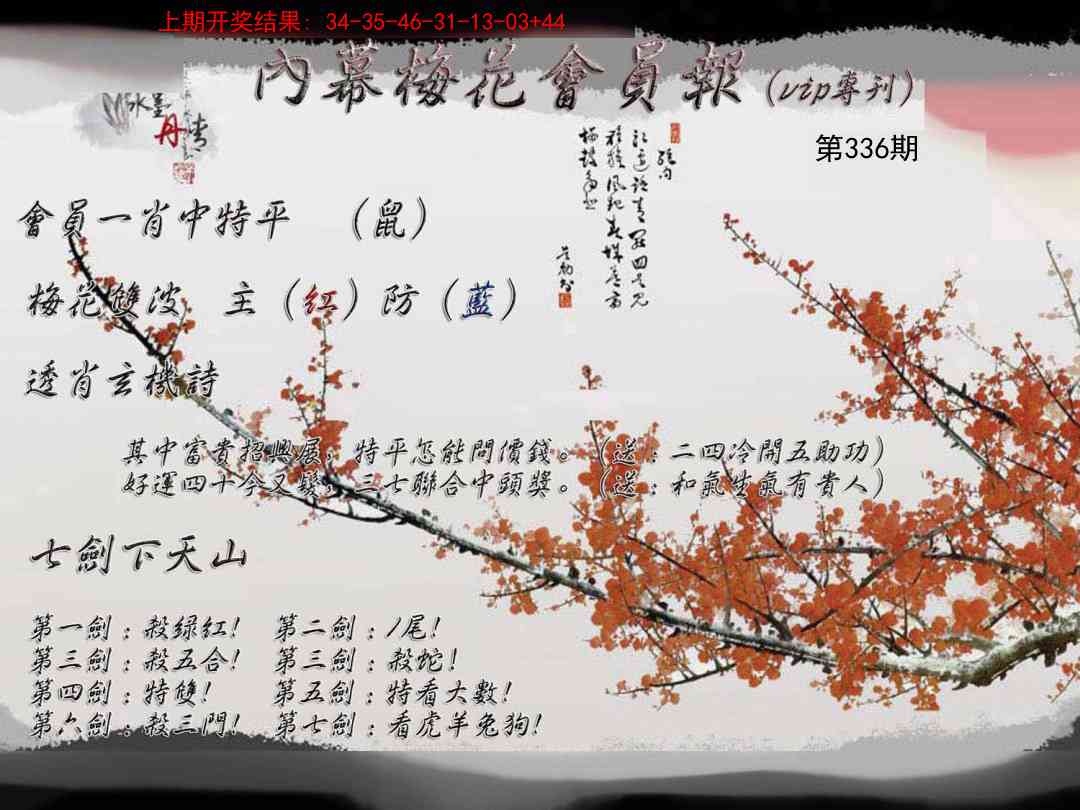 上期开奖结果: 34-35-46-31-13-03+44
內幕梅花會員報(vip專刊)
第336期
水墨
丹青
會員一肖中特平 (鼠)
梅花雙波 主(红)防(藍)
透肖玄機詩
其中富貴招興展,特平怎能問價錢。(送:二四冷開五助功)
好運四十今又發,三七聯合中頭獎。(送:和氣生氣有貴人)
七劍下天山
第一劍:殺绿红! 第二劍:1尾!
第三劍:殺五合! 第三劍:殺蛇!
第四劍:特雙! 第五劍:特看大數!
第六劍:殺三門! 第七劍:看虎羊兔狗!